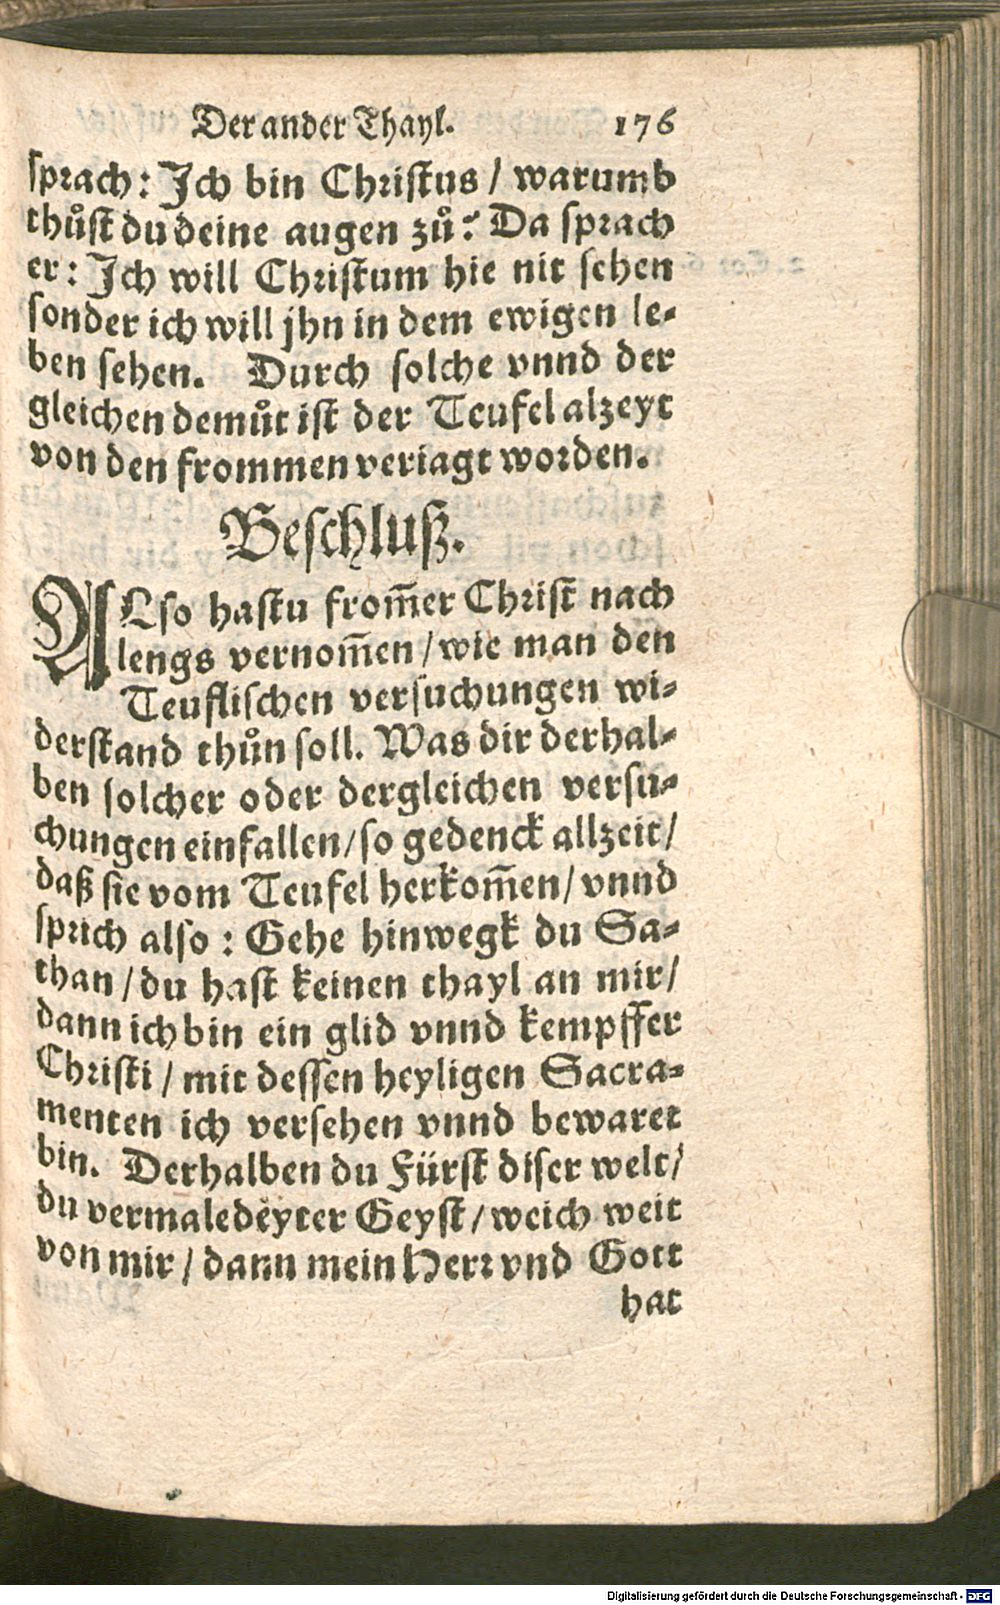 Der ander Thayl. 176
sprach: Jch bin Christus / warumb
thůst du deine augen zů? Da sprach
er: Jch will Christum hie nit sehen
sonder ich will jhn in dem ewigen le-
ben sehen. Durch solche vnnd der
gleichen demůt ist der Teufel alzeyt
von den frommen veriagt worden.
Beschluß.
ALso hastu from̄er Christ nach
lengs vernom̄en / wie man den
Teuflischen versuchungen wi-
derstand thůn soll. Was dir derhal-
ben solcher oder dergleichen versu-
chungen einfallen / so gedenck allzeit /
daß sie vom Teufel herkom̄en / vnnd
sprich also : Gehe hinwegk du Sa-
than / du hast keinen thayl an mir /
dann ich bin ein glid vnnd kempffer
Christi / mit dessen heyligen Sacra-
menten ich versehen vnnd bewaret
bin. Derhalben du Fürst diser welt /
du vermaledeyter Geyst / weich weit
von mir / dann mein Herr vnd Gott
hat
Digitalisierung gefördert durch die Deutsche Forschungsgemeinschaft - DFG